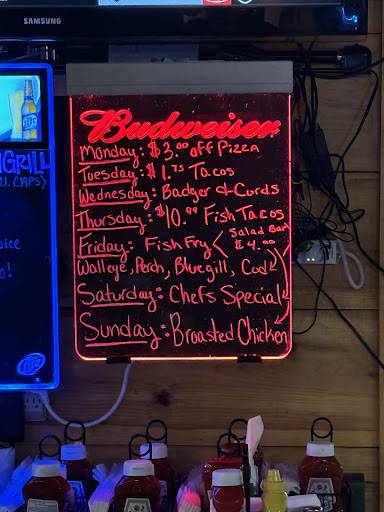 SAMSUNG
Budweiser
Monday: $3.00 off Pizza
Tuesday: $1.75 Tacos
Wednesday: Badger & Curds
Thursday: $10.99 Fish Tacos
Friday: Fish Fry < Salad Bar $4.00
Walleye, Perch, Bluegill, Cod
Saturday: Chefs Special
Sunday: Broasted Chicken
GRILL
CAPS)
Lite